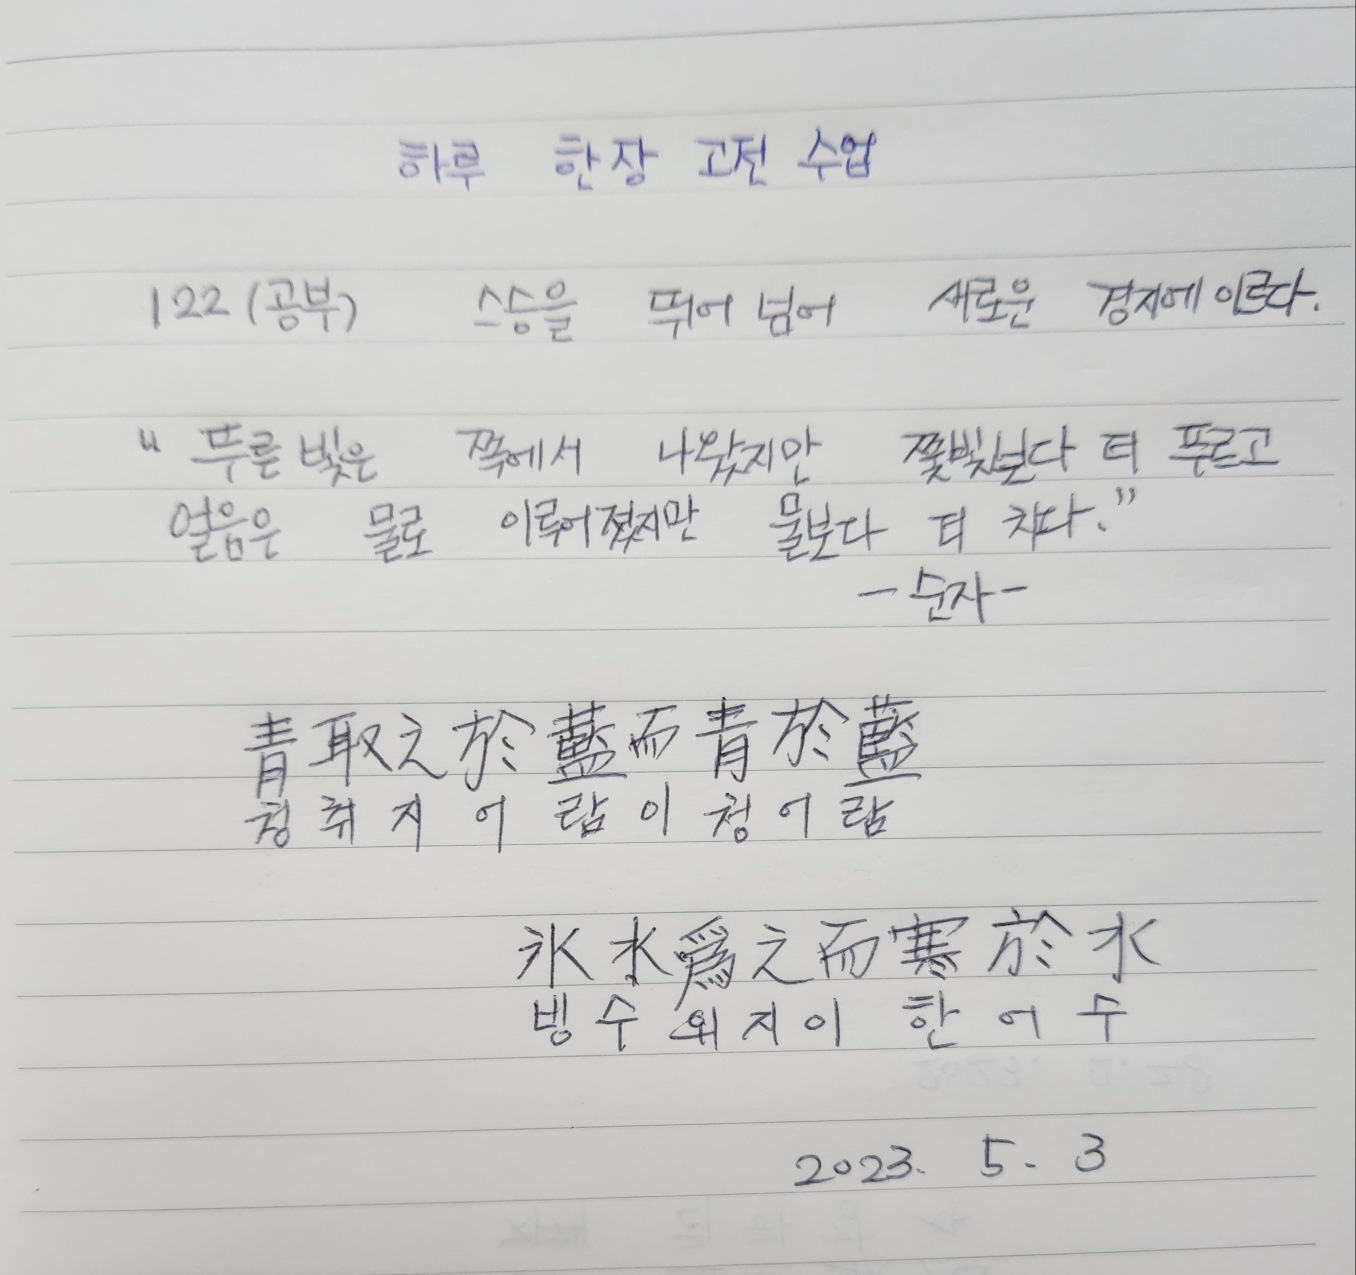 하루 한장 고전 수업
122 (공부) 스승을 뛰어 넘어 새로운 경지에 이르다.
“푸른 빛은 쪽에서 나왔지만 쪽빛보다 더 푸르고
얼음은 물로 이루어졌지만 물보다 더 차다.”
- 순자 -
靑取之於藍而靑於藍
청취지어람이청어람
氷水爲之而寒於水
빙수위지이한어수
2023. 5. 3